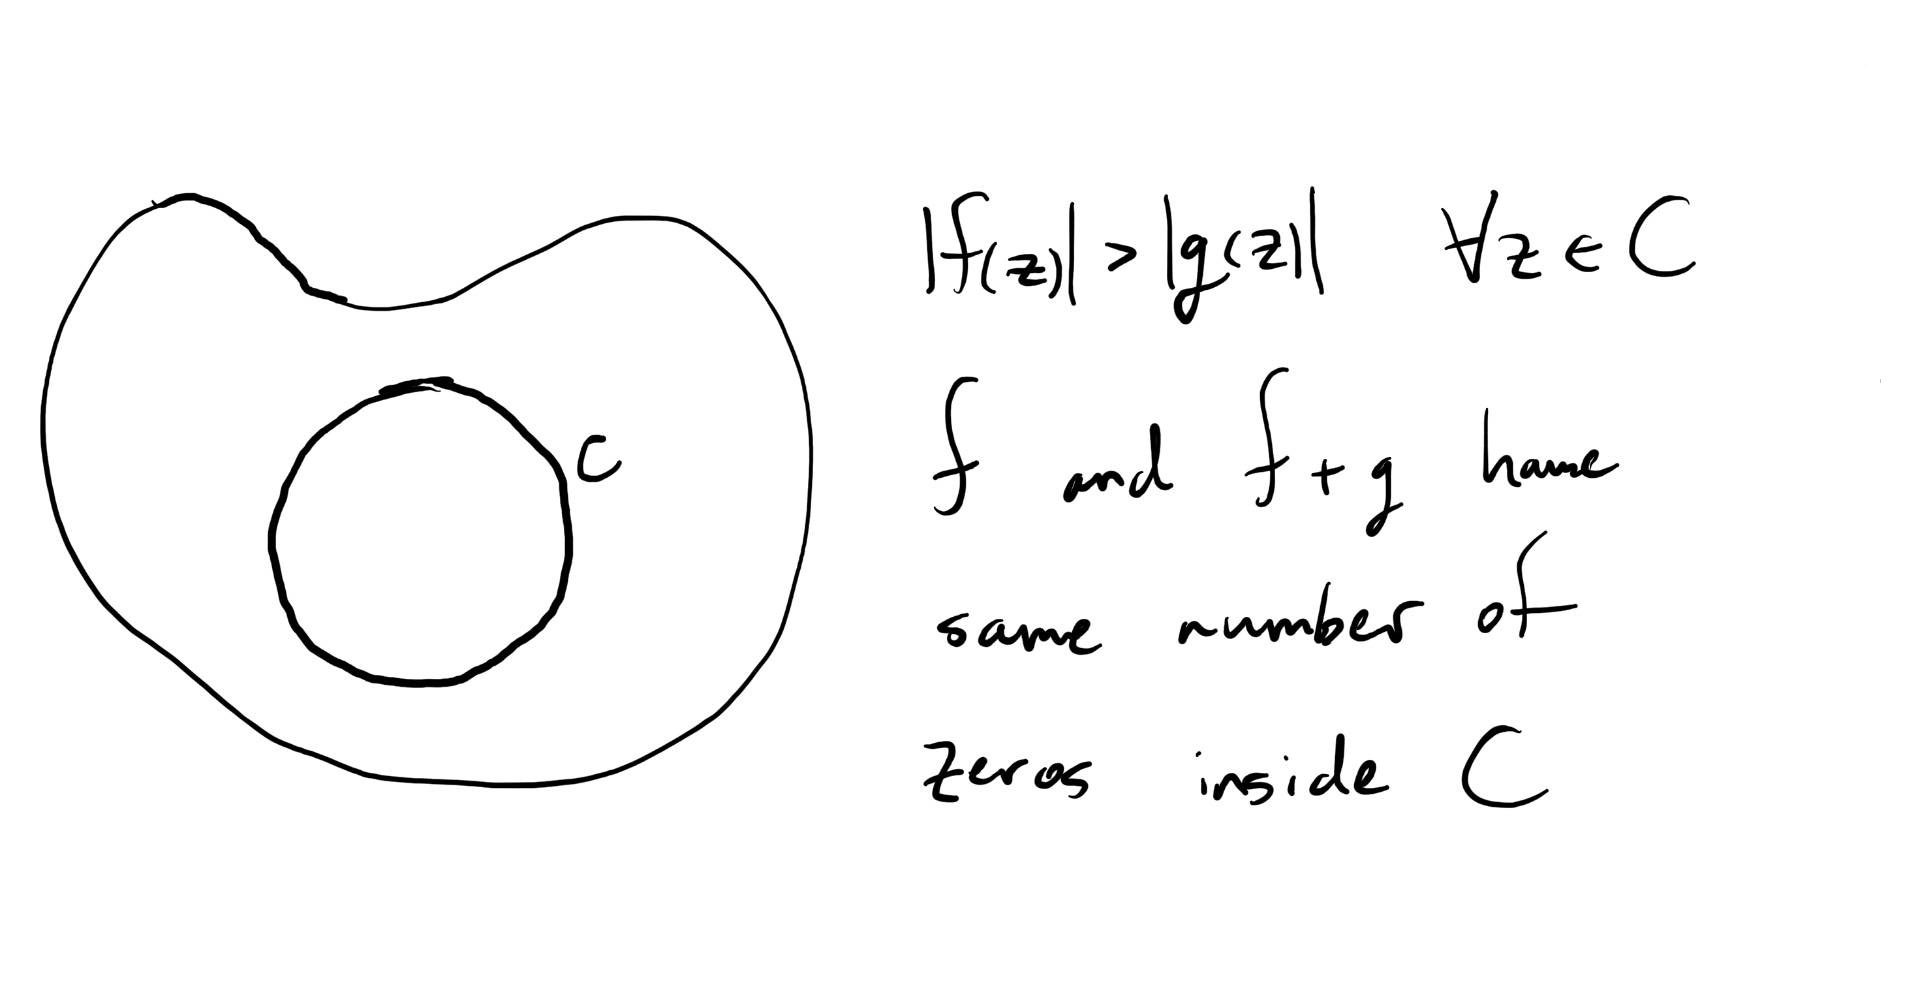 C
|f(z)| > |g(z)| ∀z ∈ C
f and f + g have
same number of
zeros inside C